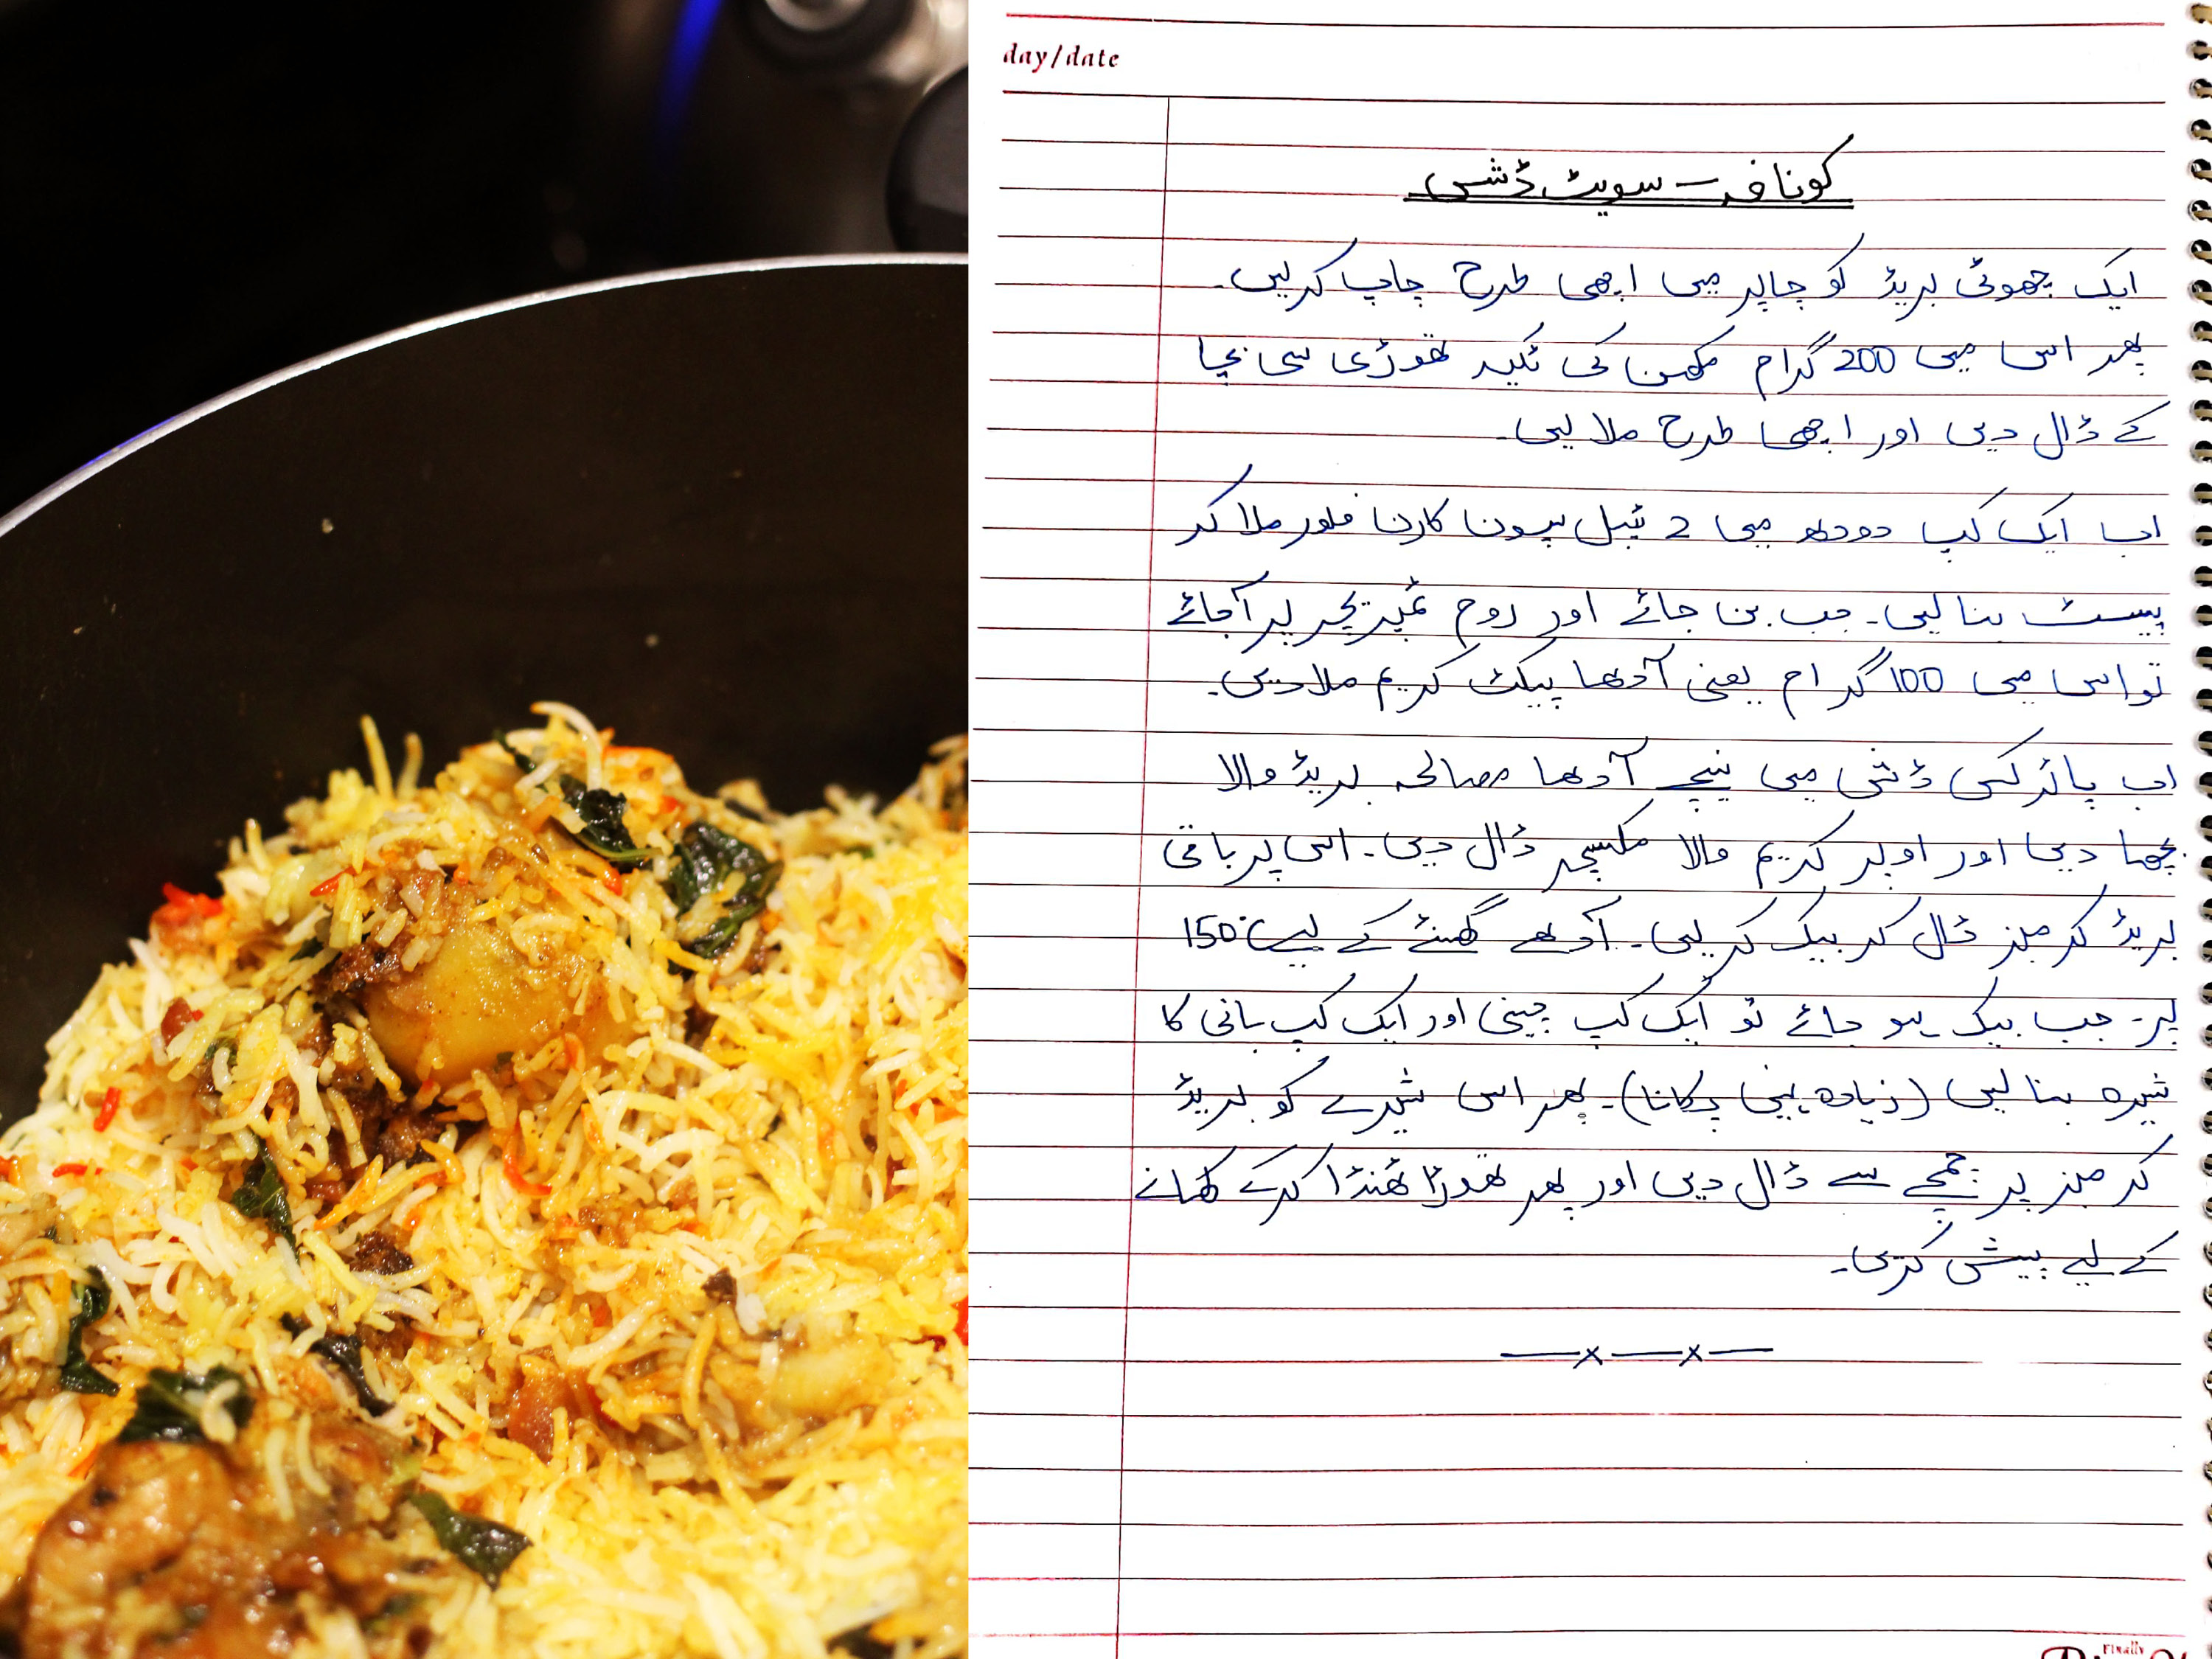 day/date
کونافہ - سویٹ ڈش
ایک چھوٹی بریڈ کو چاپر میں اچھی طرح چاپ کرلیں۔
پھر اس میں 200 گرام مکھن کی ٹکیہ تھوڑی سی بچا
کے ڈال دیں اور اچھی طرح ملا لیں۔
اب ایک کپ دودھ میں 2 ٹیبل سپون کارن فلور ملا کر
پیسٹ بنا لیں۔ جب بن جائے اور روم ٹمپریچر پر آجائے
تو اس میں 100 گرام یعنی آدھا پیکٹ کریم ملا دیں۔
اب پائرکس ڈش میں نیچے آدھا مصالحہ بریڈ والا
بچھا دیں اور اوپر کریم والا مکسچر ڈال دیں۔ اس پر باقی
بریڈ کرمبز ڈال کر بیک کر لیں۔ آدھے گھنٹے کے لیے 150°C
پر۔ جب بیک ہو جائے تو ایک کپ چینی اور ایک کپ پانی کا
شیرہ بنا لیں (زیادہ نہیں پکانا)۔ پھر اس شیرے کو بریڈ
کرمبز پر چمچے سے ڈال دیں اور پھر تھوڑا ٹھنڈا کرکے کھانے
کے لیے پیش کریں۔
—x—x—
Finally